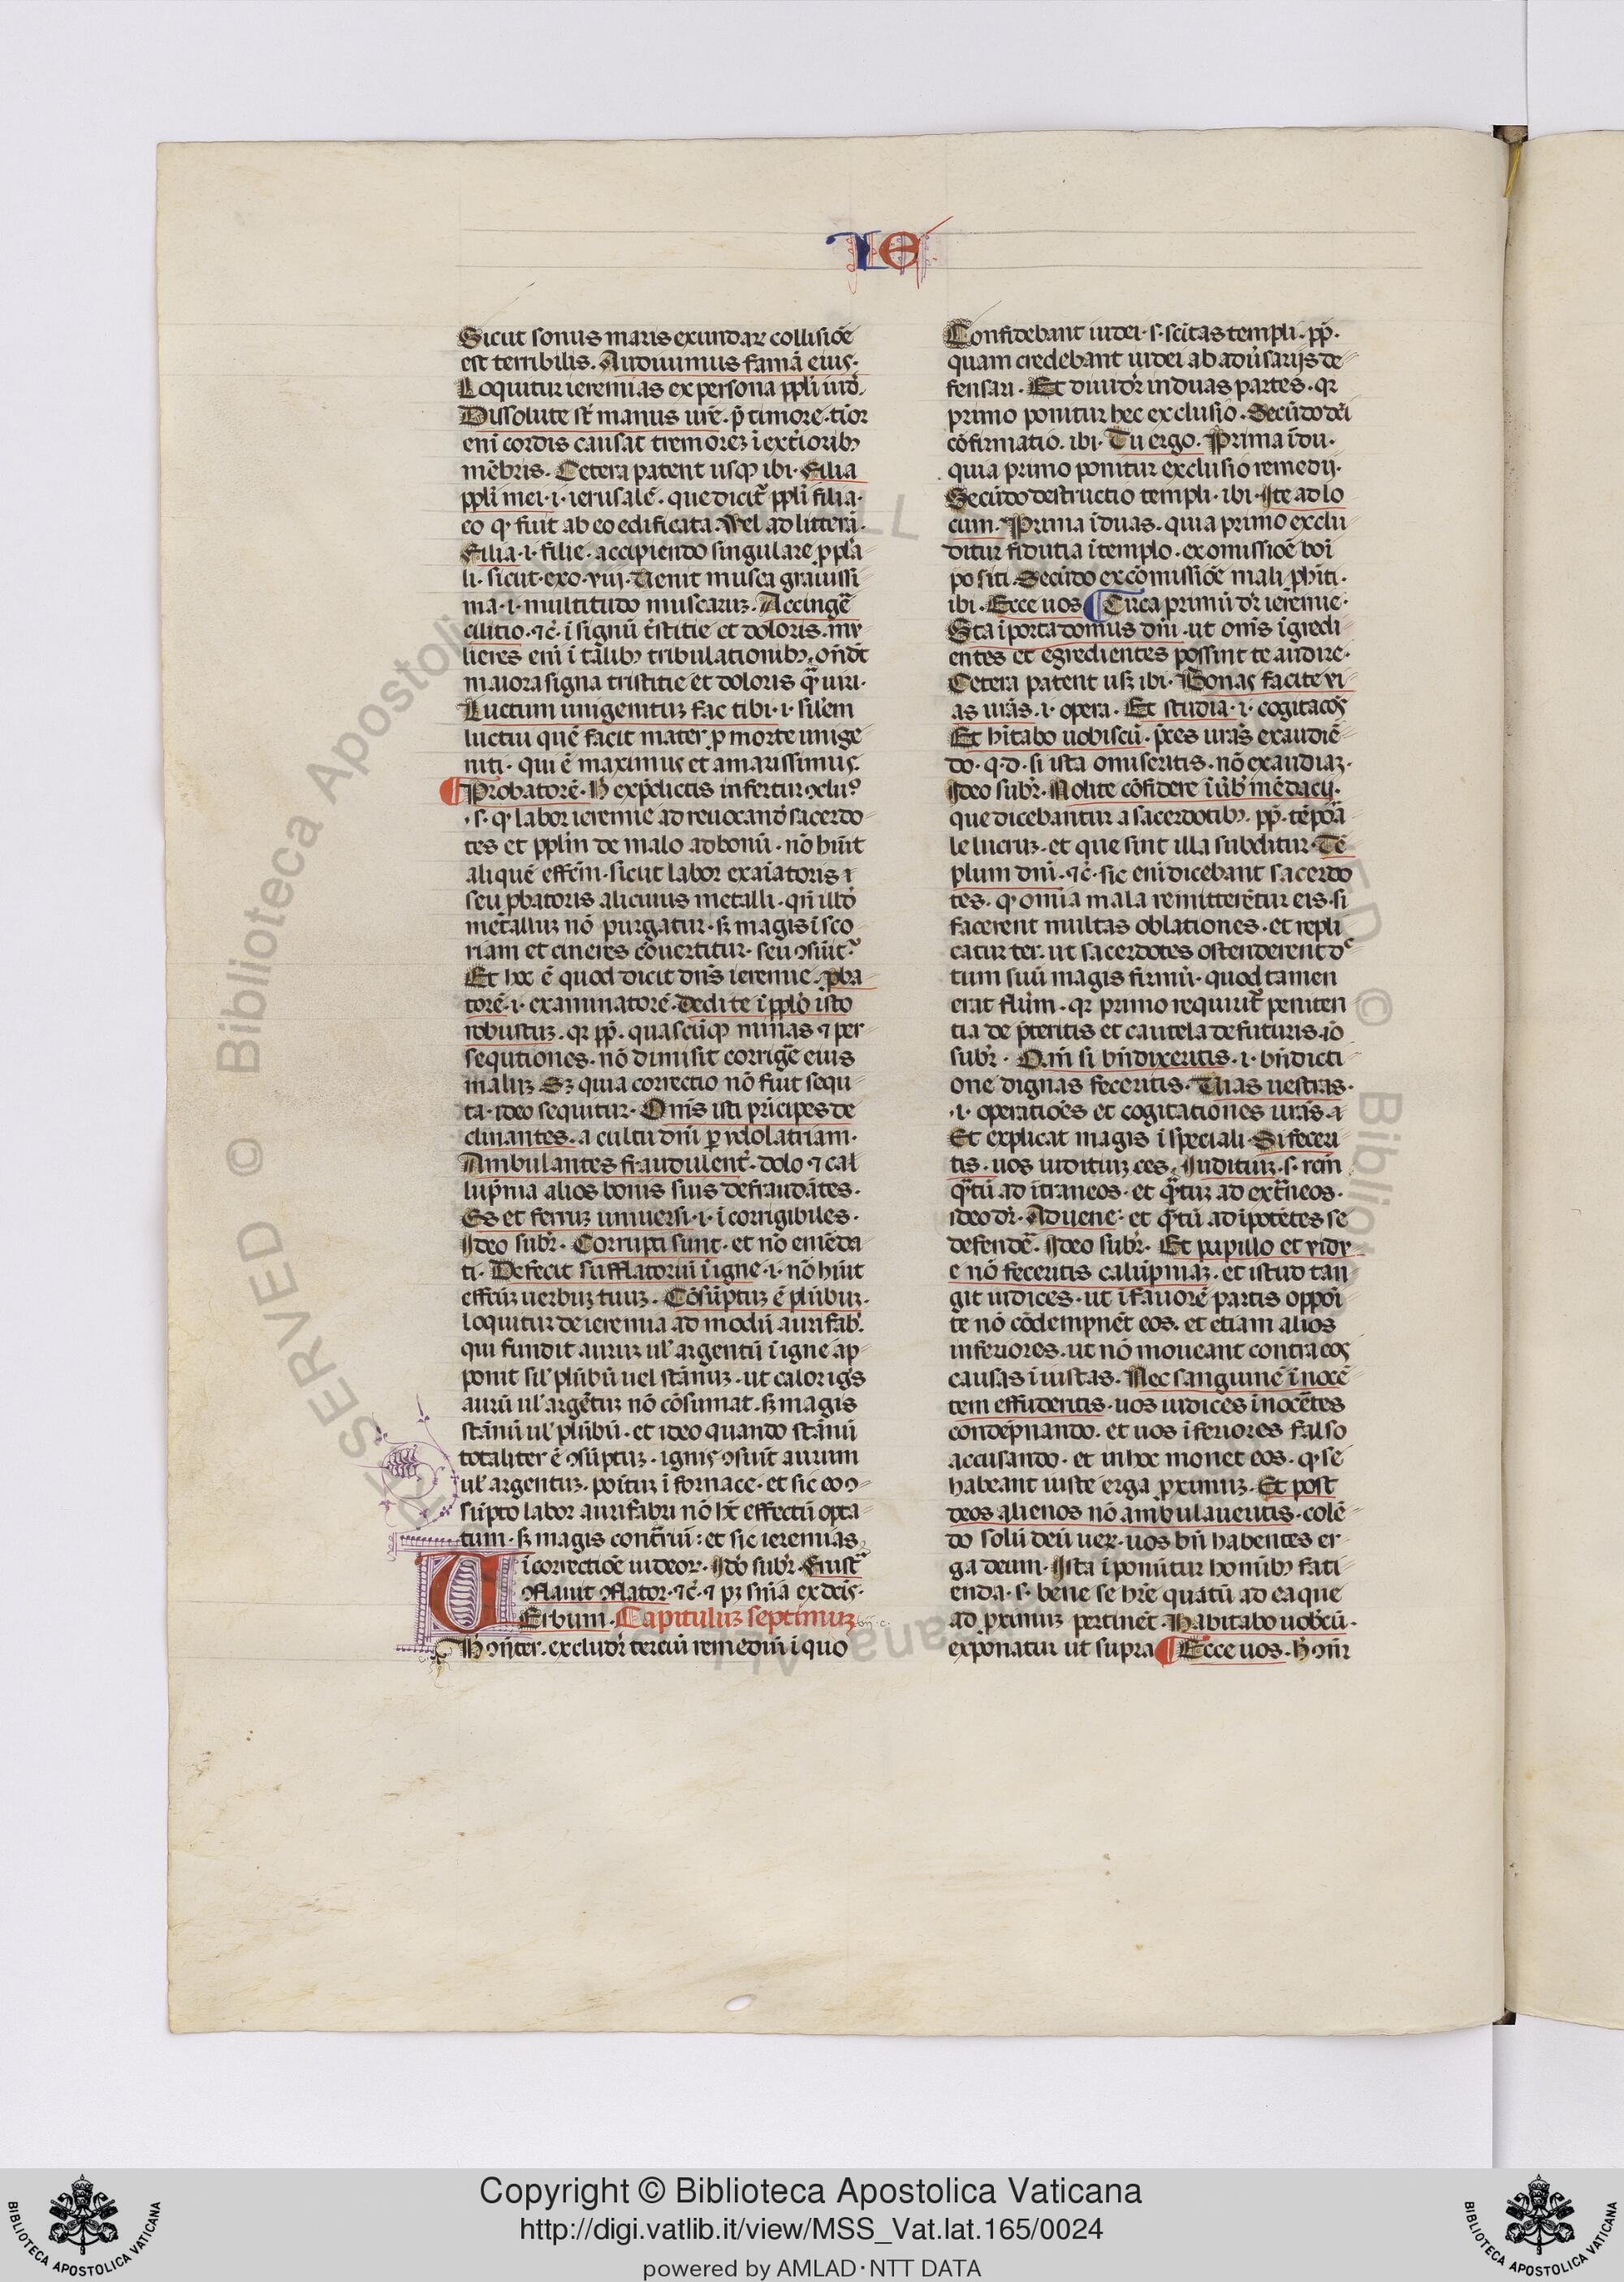 IE
Sicut sonus maris exundar͛ collisiōe
est terribilis. Audiuimus famā eius.
Loquitur ieremias ex persona ppłi iud̄.
Dissolute st̄ manus urē. p̄ timore. tior
eni cordis causat tremorez ī extioribꝫ
mēbris. Cetera patent usqꝫ ibi. Filia
ppłi mei. i. ierusalē. que dicit᷑ ppłi filia.
eo q fuit ab eo edificata. Vel ad litterā.
Filia. i. filie. accipiendo singulare p plā
li. sicut. exo. viij. Uenit musca grauissi
ma. i. multitudo muscaruꝫ. Accingē
cilitio. ⁊c̄. ī signū tstitie et doloris. mu
lieres enī ī talibꝫ tribulationibꝫ. ondt
maiora signa tristitie et doloris qͣ uiri.
Luctum unigenituꝫ fac tibi. i. silem
luctui quē facit mater p morte unige
niti. qui ē maximus et amarissimus.
Probatorē. H̄ ex p̄dictis infertur ꝯclu᷒
.s. q labor ieremie ad reuocand sacerdo
tes et pplm de malo ad bonū. nō hūit
aliquē effēm. sicut labor exaīatoris
seu ꝓbatoris alicuius metalli. qn̄ illd
metalluꝫ nō purgatur. sꝫ magis ī sco
riam et cineres cōuertitur. seu ꝯsūit᷑
Et hoc ē quod dicit dn̄s ieremie. ꝓba
torē. i. examinatorē. Dedi te ī pplo isto
robustuꝫ. qr pp̄. quascūqꝫ minas ⁊ per
sequtiones. nō dimisit corrigē eius
maluꝫ. Sꝫ quia correctio nō fuit sequ
ta. ideo sequitur. Om̄s isti prīcipes de
clinantes. a cultu dn̄i ꝑ ydolatriam.
Ambulantes fraudulent᷑. dolo ⁊ cal
lupnia alios bonis suis defraudātes.
Es et ferruꝫ uniuersi. i. ī corrigibiles.
Ideo subr̄. Corrupti sunt. et nō emēda
ti. Defecit sufflatoriū ī igne. i. nō hūit
effcūꝫ uerbuꝫ tuuꝫ. Cōsūptuꝫ ē plūbuꝫ.
loquitur de ieremia ad modū aurifab.
qui fundit auruꝫ ul argentū ī igne ap
ponit sil plūbū uel stānuꝫ. ut calor igs
aurū ul argētuꝫ nō cōsumat. sꝫ magis
stānū ul plūbū. et ideo quando stānū
totaliter ē ꝯsūptuꝫ. ignis ꝯsuit aurum
ul argentuꝫ. poituꝫ ī fornace. et sic eo ꝯ
sūpto labor aurifabri nō ht effectū opta
tum. sꝫ magis contriū: et sic ieremias
ī correctiōe iudeor. Ido subr̄. Frust᷑
ꝯflauit ꝯflator. ⁊c̄. ⁊ pꝫ snīa ex dcis.
UErbum. Capituluꝫ septimuꝫ
H ꝯn̄ter. excludr̄ terciū remediū ī quo
Confidebant iudei. s. scitas templi. pp̄.
quam credebant iudei ab aduersarijs de
fensari. Et diuidr̄ in duas partes. qr
primo ponitur hec exclusio. Secūdo dei
cōfirmatio. ibi. Tu ergo. Prima ī du.
quia primo ponitur exclusio remedij.
Secūdo destructio templi. ibi. Ite ad lo
cum. Prima ī duas. quia primo exclu
ditur fidutia ī templo. ex omissiōe boi
positi. Secūdo ex cōmissiōe mali phiti.
ibi. Ecce uos. Circa primū dr̄ ieremie.
Sta ī porta domus dn̄i. ut om̄s īgredi
entes et egredientes possint te audire.
Cetera patent usꝫ ibi. Bonas facite vi
as urās. i. opera. Et studia. i. cogitacōs
Et hitabo uobiscū. pces urās exaudiē
do. q. d. si ista omiseritis. nō exaudiaꝫ.
Ideo subr̄. Nolite cōfidere ī ub mēdacij.
que dicebantur a sacerdotibꝫ. pp̄. tēpoā
le lucruꝫ. et que sint illa subditur. Tē
plum dn̄i. ⁊c̄. sic eni dicebant sacerdo
tes. q omia mala remitterētur eis. si
facerent multas oblationes. et repli
catur ter. ut sacerdotes ostenderent dc
tum suū magis firmū. quod tamen
erat flm. qr primo requirit᷑ peniten
tia de p̄teritis et cautela de futuris. iō
subr̄. Qm̄ si bn̄dixeritis. i. bn̄dicti
one dignas feceritis. Uias uestras.
.i. operatiōes et cogitationes urās. ⁊
Et explicat magis ī speciali. Si feceri
tis. uos iudituꝫ ces. Iudituꝫ. s. rcm
qͣtū ad itraneos. et qͣtuꝫ ad extneos.
ideo dr̄. Aduene: et qͣtū ad ipotētes se
defendē. Ideo subr̄. Et pupillo et vidu
e nō feceritis calūpniaꝫ. et istud tan
git iudices. ut ī fauorē partis oppoi
te nō cōdempnēt eos. et etiam alios
inferiores. ut nō moueant contra eos
causas ī iustas. Nec sanguinē ī nocē
tem effuderitis. uos iudices īnocētes
condēpnando. et uos īferiores falso
accusando. et in hoc monet eos. q se
habeant iuste erga ꝓximuꝫ. Et post
deos alienos nō ambulaueritis. colē
do solū deū uer. uos bn̄ habentes er
ga deum. Ista ī ponūtur homibꝫ fati
enda. s. bene se hre quātū ad ea que
ad ꝓximuꝫ pertinēt. Habitabo uobcū.
exponatur ut supra Ecce uos. h̄ ꝯn̄r
Copyright © Biblioteca Apostolica Vaticana
http://digi.vatlib.it/view/MSS_Vat.lat.165/0024
powered by AMLAD·NTT DATA